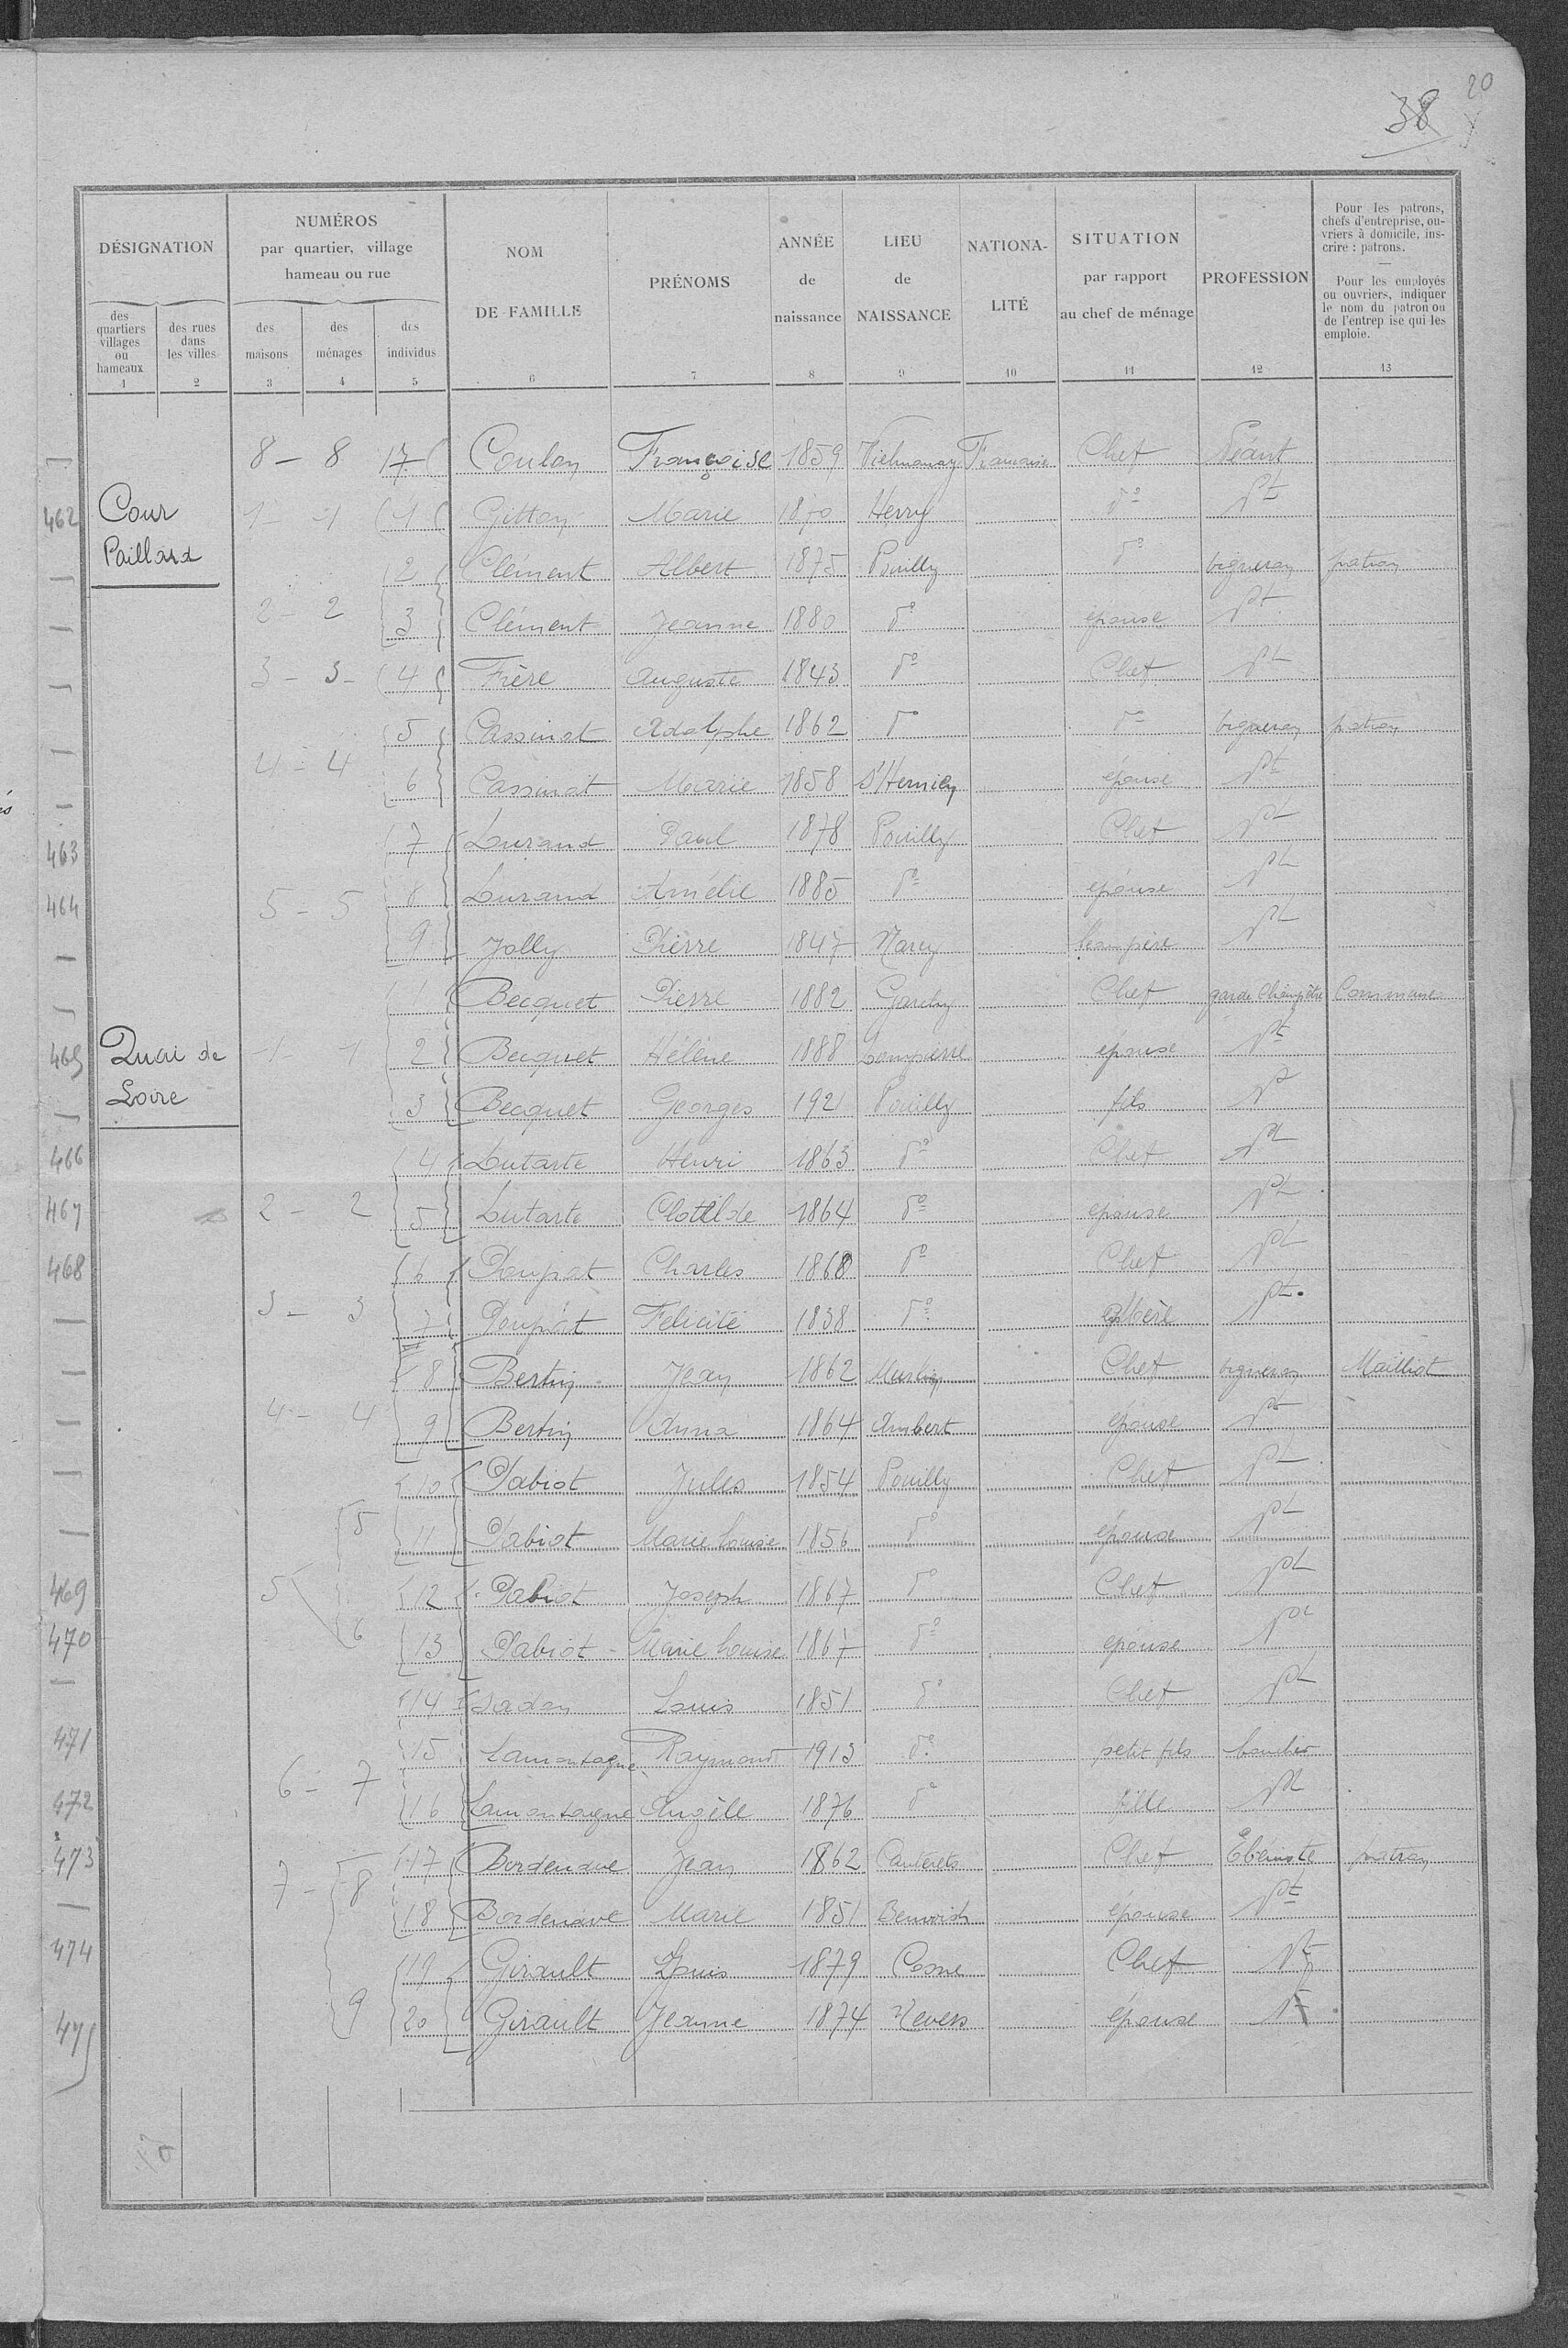 20
38
DÉSIGNATION
NUMÉROS
par quartier, village
hameau ou rue
NOM
DE FAMILLE
PRÉNOMS
ANNÉE
de
naissance
LIEU
de
NAISSANCE
NATIONA-
LITÉ
SITUATION
par rapport
au chef de ménage
PROFESSION
Pour les patrons,
chefs d'entreprise, ou-
vriers à domicile, ins-
crire : patrons.
Pour les employés
ou ouvriers, indiquer
le nom du patron ou
de l'entrep ise qui les
emploie.
des
quartiers
villages
ou
hameaux
des rues
dans
les villes
des
maisons
des
ménages
des
individus
1 2 3 4 5 6 7 8 9 10 11 12 13
8 - 8 17 Coulon Françoise 1859 Vielmanay Francaise Chef Néant
462 Cour Paillard 1 - 1 1 Gitton Marie 1870 Herry do Nt
2 Clément Albert 1875 Pouilly do vigneron patron
2 - 2 3 Clément Jeanne 1880 do épouse Nt
3 - 3 - 4 Frère Auguste 1843 do Chef Nt
5 Cassinat Adolphe 1862 do do vigneron patron
4 - 4 6 Cassinat Marie 1858 épouse Nt
463 7 Durand Paul 1878 Pouilly Chef Nt
464 5 - 5 8 Durand Amélie 1885 do epouse Nt
9 Jolly Pierre 1847 Narcy beau père Nt
1 Becquet Pierre 1882 Garchy Chef garde Champêtre Commune
465 Quai de Loire 1 - 1 2 Becquet Hélène 1888 Dompierre épouse Nt
3 Becquet Georges 1921 Pouilly fils Nt
466 4 Dutarte Henri 1863 do Chef Nt
467 2 - 2 5 Dutarte Clotilde 1864 do épouse Nt
468 6 Poupat Charles 1868 do Chef Nt
3 - 3 7 Poupat Felicité 1838 do Mère Nt
8 Bertin Jean 1862 Chef vigneron Mailliot
4 - 4 9 Bertin Anna 1864 Ambert épouse Nt
10 Pabiot Jules 1854 Pouilly Chef Nt
5 11 Pabiot Marie Louise 1856 do épouse Nt
469 5 12 Pabiot Joseph 1867 do Chef Nt
470 6 13 Pabiot Marie Louise 1867 do epouse Nt
14 Dadon Louis 1851 do Chef Nt
471 15 Lamontagne Raymond 1913 do petit fils boucher
472 6 - 7 16 Lamontagne Angèle 1876 do fille Nt
473 7 - 8 17 Bordenave Jean 1862 Cauterets Chef Ebéniste patron
18 Bordenave Marie 1851 épouse Nt
474 19 Girault Louis 1879 Cosne Chef Nt
475 9 20 Girault Jeanne 1874 Nevers épouse Nt